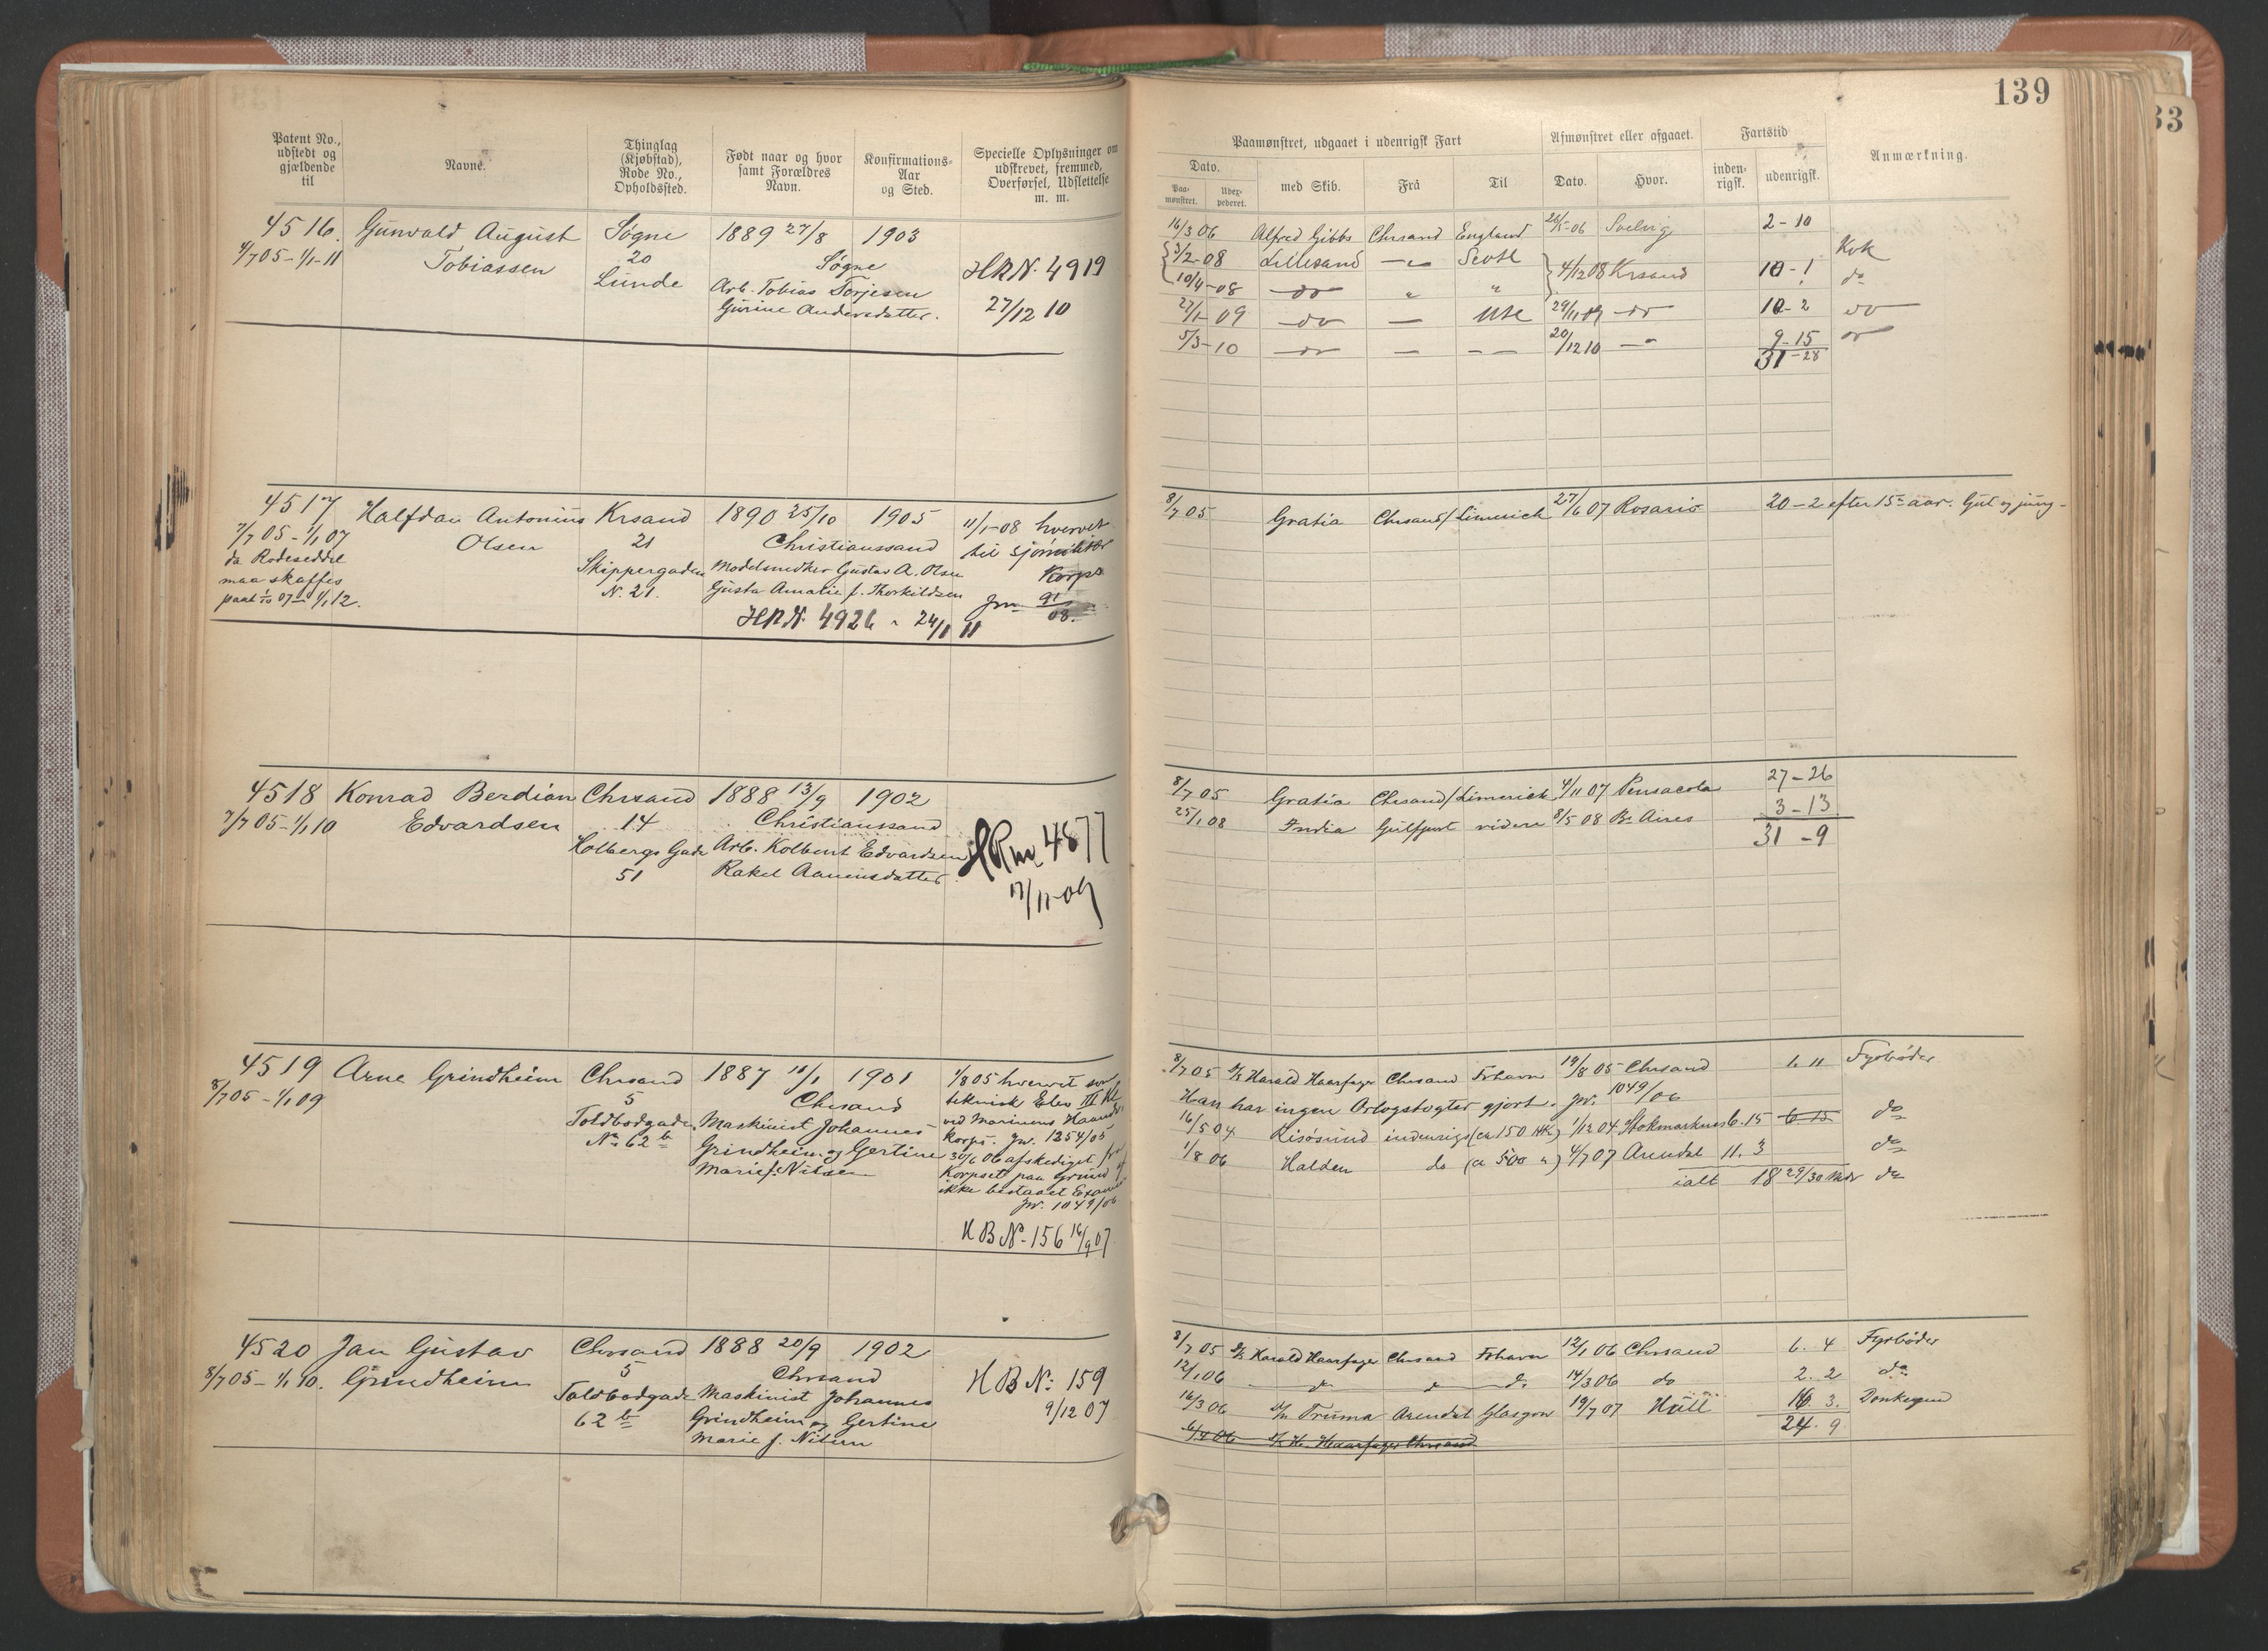 139
33
Patent No., udstedt og gjældende til
Navne.
Thinglag (Kjøbstad), Rode No., Opholdssted.
Født naar og hvor samt Forældres Navn.
Konfirmations-Aar og Sted.
Specielle Oplysninger om udskrevet, fremmed, Overførsel, Udslettelse m. m.
Paamønstret, udgaaet i udenrigsk Fart
Afmønstret eller afgaaet.
Fartstid
Anmærkning.
Dato.
Paa-mønstret.
Udex-pederet.
med Skib.
Frå
Til
Dato.
Hvor.
inden-rigsk.
udenrigsk.
4516. Gunvald August Søgne 1889 27/8 1903
4/7 05 - 1/1-11 Tobiassen 20 Søgne HRN. 4919
Lunde Arb. Tobias Torjesen
Gurine Andersdatter. 27/12 10
16/3 06 Alfred Gibbs Chrsand England 26/5-06 Svelvig 2-10
3/2-08 Lillesand Scotl 4/12 08 Krsand 10-1 Kok
10/4-08 do " " do
27/1-09 do — Use 29/11 09 do 10-2 do
5/3-10 do — — — 20/12 10 — 9-15 do
31-28
4517 Halfdan Antonius Krsand 1890 25/10 1905 11/1-08 hvervet
7/7 05 - 1/1 07 Olsen 21 Christianssand til sjømilitær
da Rodeseddel Skippergaden Modelsnedker Gustav A. Olsen Korps
maa skaffes N. 21. Gusta Amalie f. Thorkildsen Jrn 91/08.
paat 1/10 07 - 1/1 12.
HRN. 4926 - 24/1 11
8/7 05 Gratia Chrsand/Limerick 27/6 07 Rosario 20-2 efter 15de aar. Gut og jung-
4518 Konrad Berdian Chrsand 1888 13/9 1902
7/7 05 - 1/1 10 Edvardsen 14 Christianssand
Holbergs Gade Arb. Kolbent Edvardsen HRN 4877
51 Rakel Aanensdatter 17/11-09
8/7 05 Gratia Chrsand/Limerick 4/11 07 Pensacola 27-26
25/1 08 India Gulfport videre 8/5 08 Bs Aires 3-13
31-9
4519 Arne Grindheim Chrsand 1887 11/1 1901 1/8 05 hvervet som
8/7 05 - 1/1 09 5 Chrsand teknisk Elev III Kl
Toldbodgaden Maskinist Johannes ved Marinens Haandv.
No 62 b Grindheim og Gertine Korps. Jw. 1254/05
Marie f. Nilsen 30/6 06 afskediget fra
Korpset paa Grund af
ikke bestaaet Examen
Jw. 1049/06
HB No. 156 16/9 07
8/7 05 D/S Harald Haarfager Chrsand Frhavn 19/8 05 Chrsand 1. 11 Fyrbøder
Han har ingen Orlogstogter gjort. jw. 1049/06
16/5 04 Risøsund indenrigs (ca 150 HK) 1/12 04 Stokmarknes 6. 15 6-15 do
1/8 06 Halden do (ca 500 ") 4/7 07 Arendal 11. 3 do
ialt 18 29/30 Mdr do
4520 Jan Gustav Chrsand 1888 20/9 1902
8/7 05 - 1/1 10. Grindheim 5 Chrsand HB No: 159
Toldbodgade Maskinist Johannes 9/12 07
62 b Grindheim og Gertine
Marie f. Nilsen
8/7 05 D/S Harald Haarfager Chrsand Frhavn 12/1 06 Chrsand 6. 4 Fyrbøder
12/1 06 do do do 14/3 06 do 2. 2 do
16/3 06 D/S Truma Arendal Glasgow 19/7 07 Hull 16. 3. Donkeymd
24. 9
6/4 06 D/S H. Haarfager Chrsand